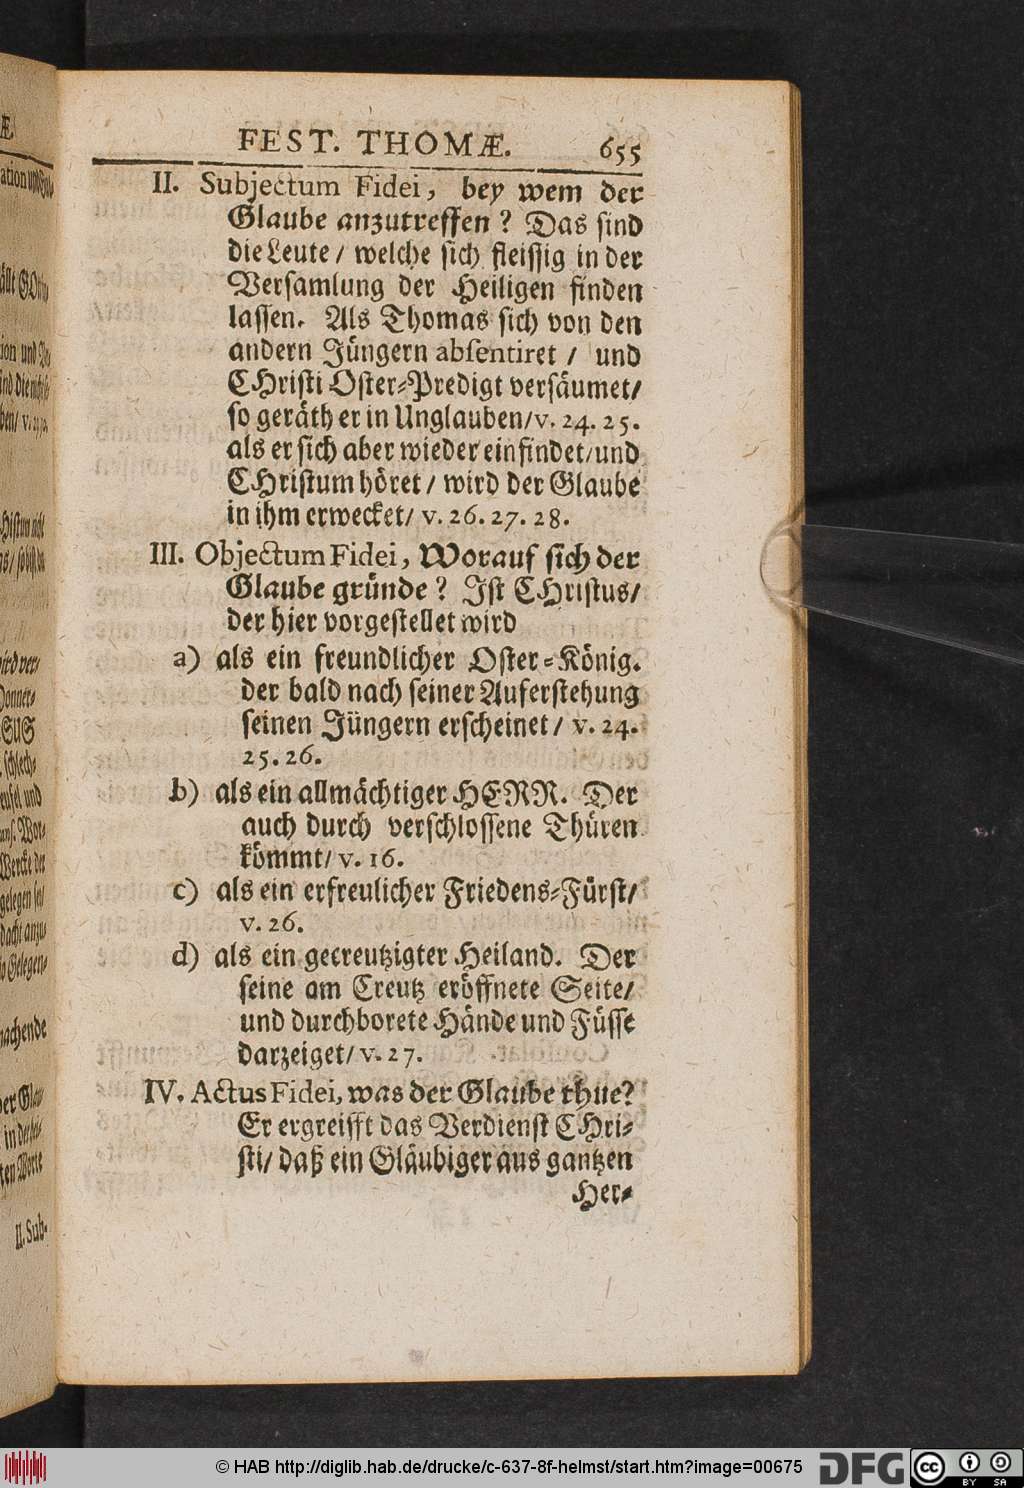 FEST. THOMÆ. 655
II. Subjectum Fidei, bey wem der
Glaube anzutreffen? Das sind
die Leute / welche sich fleissig in der
Versamlung der Heiligen finden
lassen. Als Thomas sich von den
andern Jüngern absentiret / und
CHristi Oster-Predigt versäumet/
so geräth er in Unglauben/ v. 24. 25.
als er sich aber wieder einfindet/und
CHristum höret / wird der Glaube
in ihm erwecket/ v. 26. 27. 28.
III. Objectum Fidei, Worauf sich der
Glaube gründe? Ist CHristus/
der hier vorgestellet wird
a) als ein freundlicher Oster-König.
der bald nach seiner Auferstehung
seinen Jüngern erscheinet / v. 24.
25. 26.
b) als ein allmächtiger HERR. Der
auch durch verschlossene Thüren
kömmt/ v. 16.
c) als ein erfreulicher Friedens-Fürst/
v. 26.
d) als ein gecreutzigter Heiland. Der
seine am Creutz eröffnete Seite/
und durchborete Hände und Füsse
darzeiget/ v. 27.
IV. Actus Fidei, was der Glaube thue?
Er ergreifft das Verdienst CHri-
sti/ daß ein Gläubiger aus gantzen
Her-
© HAB http://diglib.hab.de/drucke/c-637-8f-helmst/start.htm?image=00675
DFG
cc BY SA